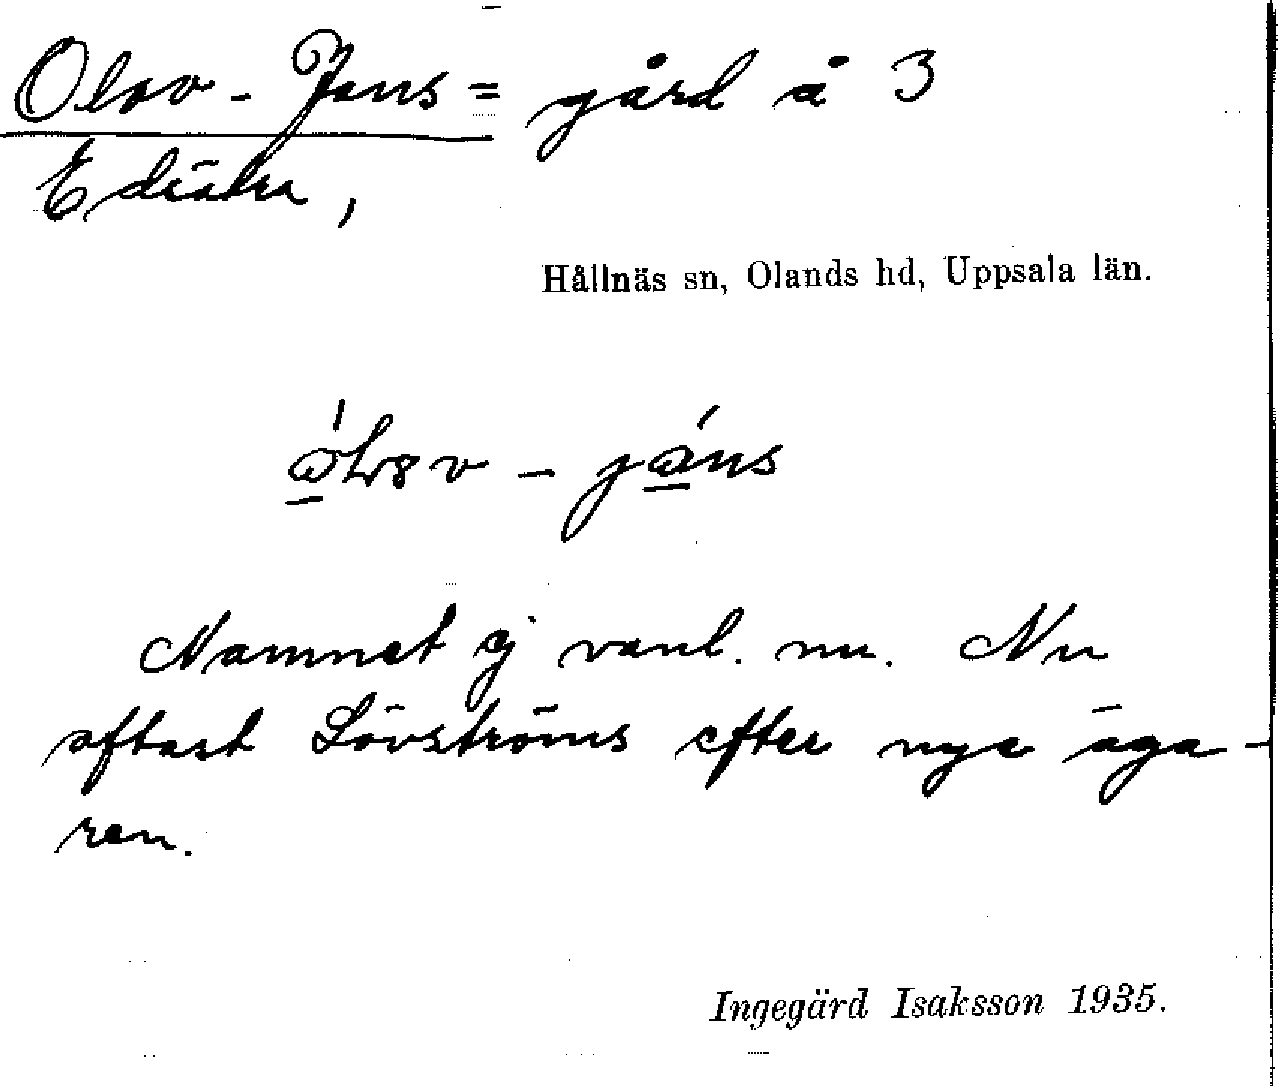 Olov-Jans= gård å 3
Ediäka,
Hållnäs sn, Olands hd, Uppsala län.
Namnet ej vanl. nu. Nu
oftast Lövströms efter nye äga-
ren.
Ingegärd Isaksson 1935.